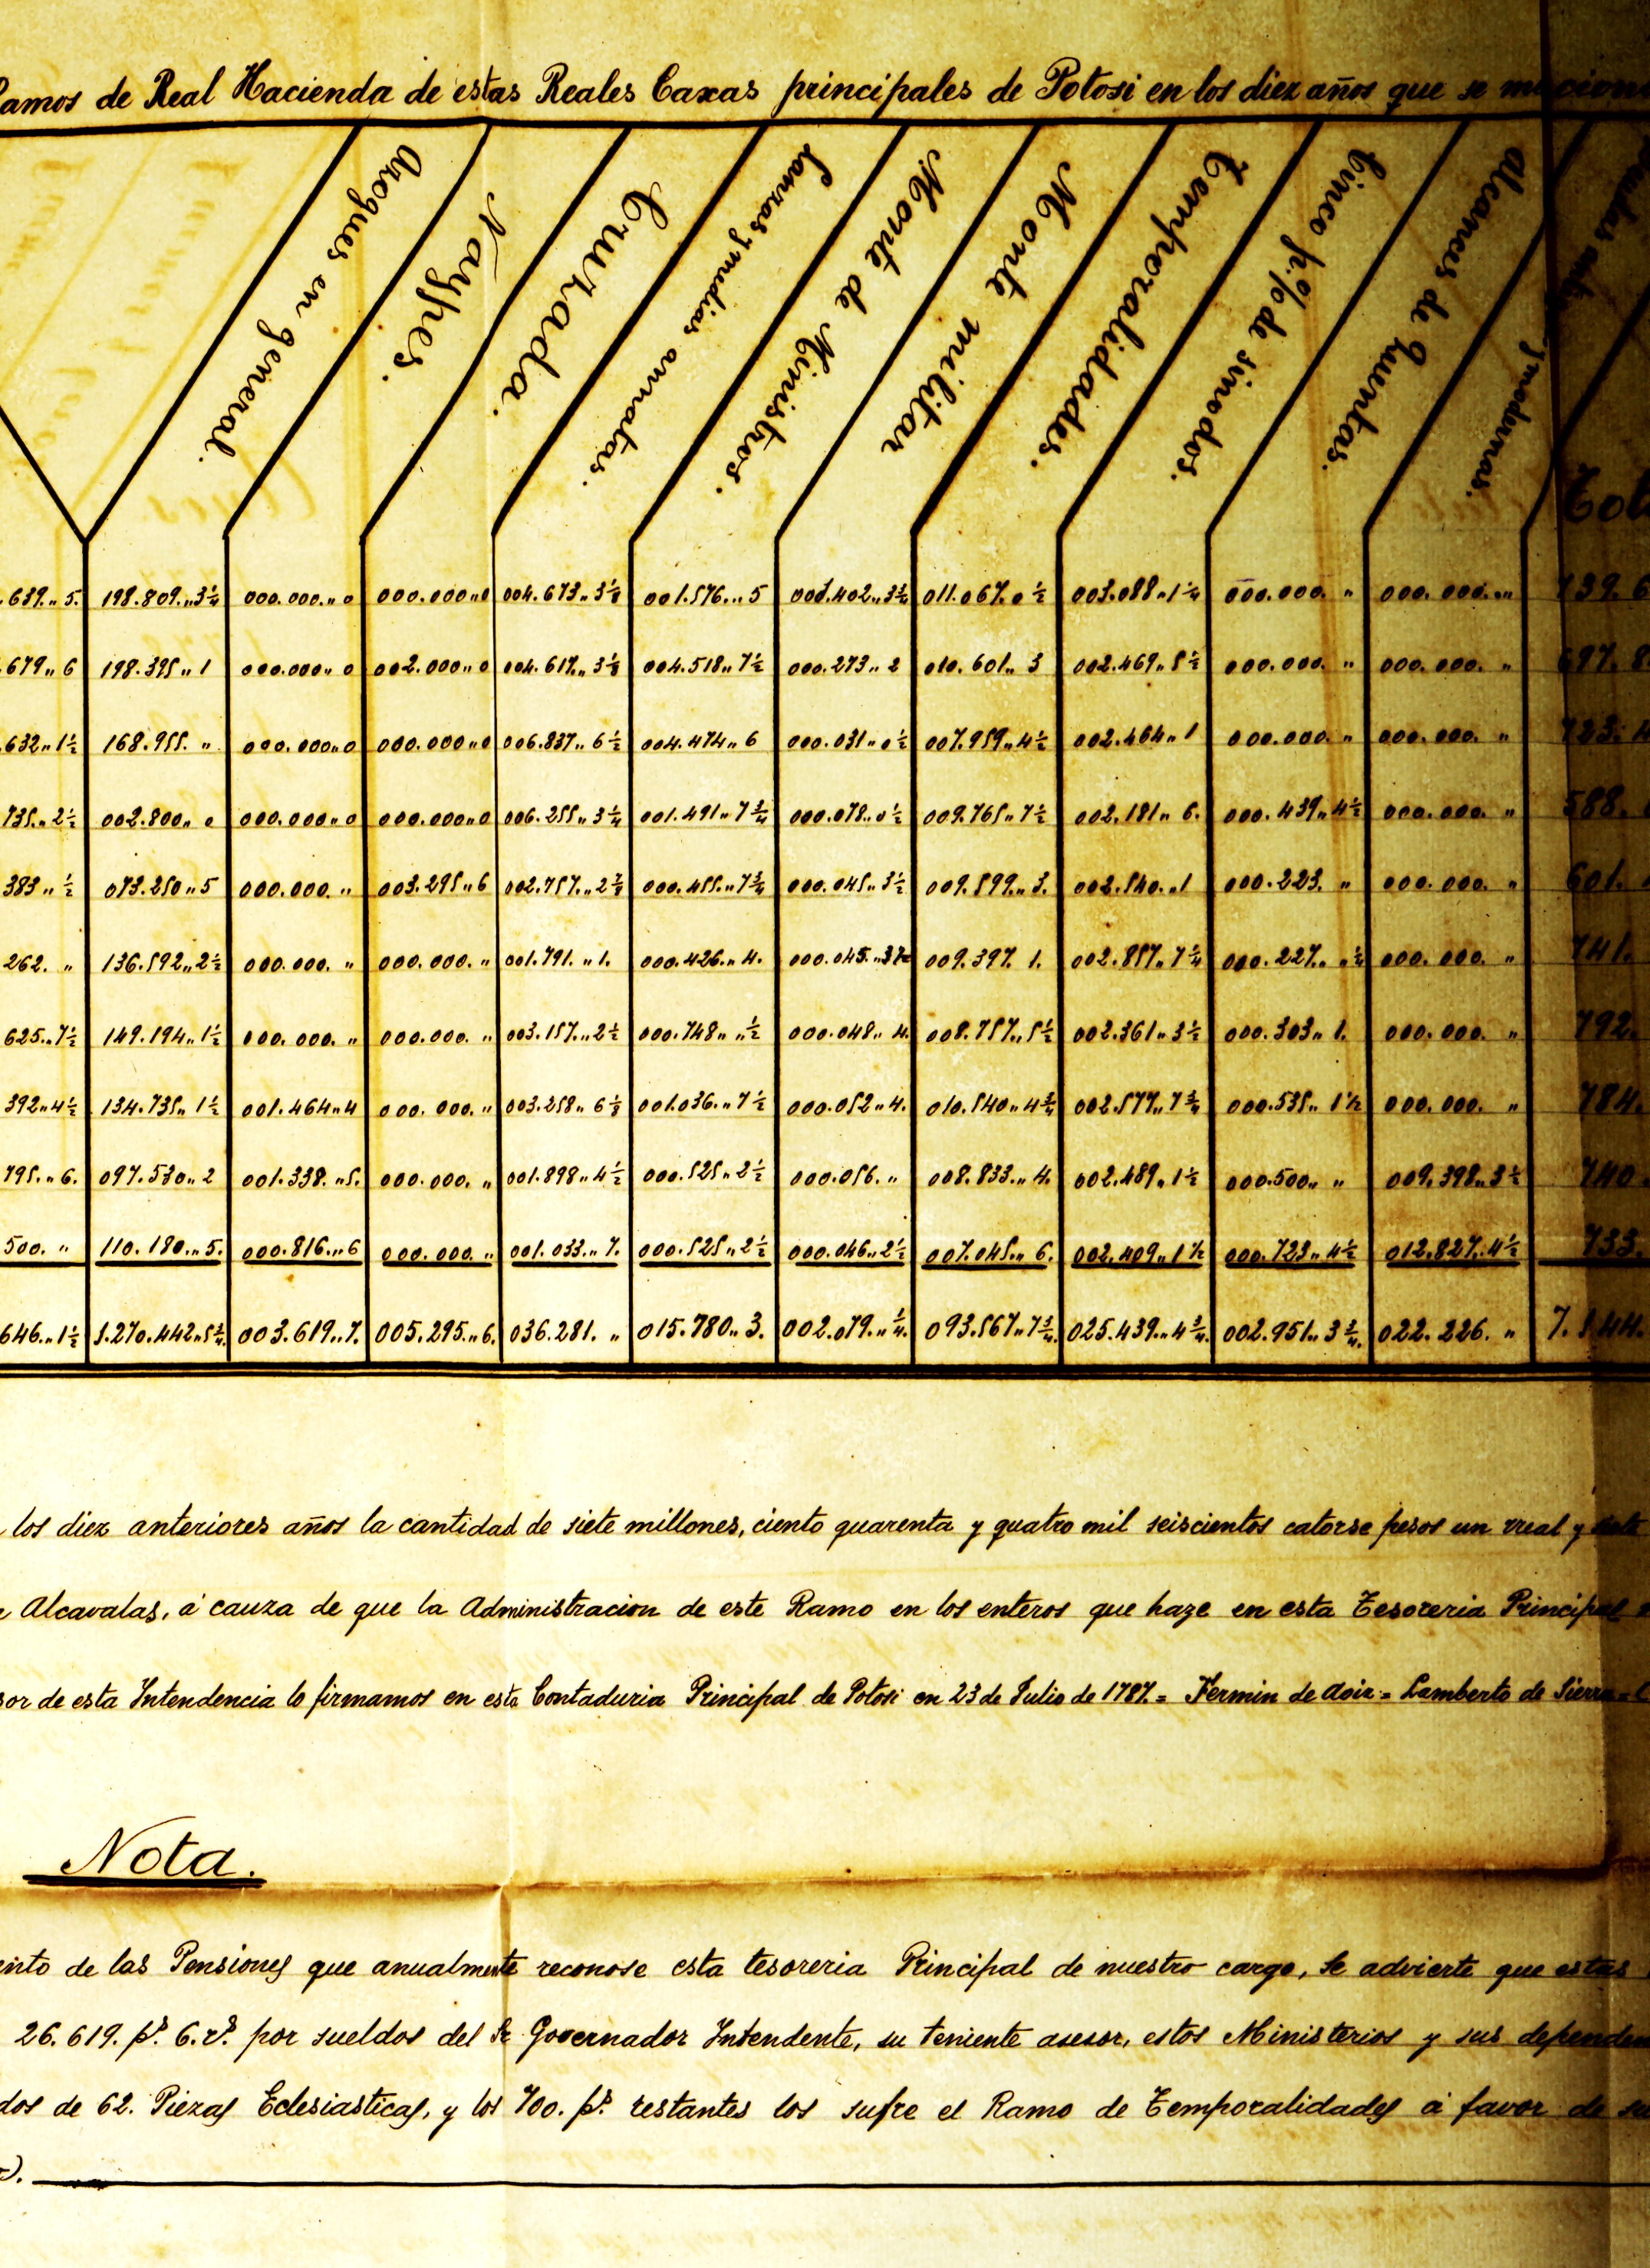 Ramos de Real Hacienda de estas Reales Caxas principales de Potosi en los diez años que se
Azogues en general.
Naypes.
Cruzada.
Lanzas y medias annatas.
Monte de Ministros.
Monte militar
Temporalidades.
Cinco p.% de sinodos.
Alcances de Quentas.
y modernas.
639.,, 5. 198.809.,,3¼ 000.000.,,0 000.000,,0 004.673,,3⅛ 001.576.,,5 001.402,,3¾ 011.067.0½ 003.088,,1¼ 000.000. ,, 000.000.,, 739.6
679,,6 198.395,,1 000.000,,0 002.000,,0 004.617.,,3⅛ 004.518,,7½ 000.273,,2 010.601,,3 002.469,,5½ 000.000. ,, 000.000. ,, 697.8
632,,1½ 168.955. ,, 000.000,,0 000.000,,0 006.837,,6½ 004.474,,6 000.031,,0½ 007.959,,4½ 002.464,,1 000.000. ,, 000.000. ,, 723.4
735.,,2½ 002.800,,0 000.000,,0 000.000,,0 006.255,,3¼ 001.491,,7¾ 000.078.,,0½ 009.765,,7½ 002.181,,6. 000.439,,4½ 000.000. ,, 588.
383,,½ 073.250,,5 000.000. ,, 003.295,,6 002.757.,,2⅞ 000.455.,,7¾ 000.045.,,3½ 009.599.,,3. 002.540.,,1 000.223. ,, 000.000. ,, 601.
262. ,, 136.592,,2½ 000.000. ,, 000.000. ,, 001.791.,,1. 000.426.,,4. 000.045.,,3½ 009.397. 1. 002.857.,7¼ 000.227. ,,¼ 000.000. ,, 741.
625.,7½ 149.194,,1½ 000.000. ,, 000.000. ,, 003.157.,,2½ 000.748,, ,,½ 000.048,,4. 008.757.,,5½ 002.361,,3½ 000.303,,1. 000.000. ,, 792.
392,,4½ 134.735,,1½ 001.464,,4 000.000. ,, 003.258,,6⅛ 001.036.,,7½ 000.052,,4. 010.540,,4¾ 002.577,,7¾ 000.535,,1½ 000.000. ,, 784.
795.,,6. 097.530,,2 001.338.,,5. 000.000. ,, 001.898,,4½ 000.525,,2½ 000.056. ,, 008.833.,,4. 002.489,,1½ 000.500,, ,, 009.398.,3½ 740.
500. ,, 110.180.,,5. 000.816.,,6 000.000. ,, 001.033.,,7. 000.525,,2½ 000.046,,2½ 007.045.,,6. 002.409,,1½ 000.723,,4½ 012.827.,4½ 733.
646.,,1½ 1.270.442,,5¾. 003.619,,7. 005.295.,,6. 036.281. ,, 015.780,,3. 002.079.,,¼. 093.567,,7¾. 025.439.,,4¾. 002.951.,,3¾. 022.226. ,, 7.144.
los diez anteriores años la cantidad de siete millones, ciento quarenta y quatro mil seiscientos catorse pesos un rreal y siete
Alcavalas, á cauza de que la Administracion de este Ramo en los enteros que haze en esta Tesoreria Principal
sor de esta Intendencia lo firmamos en esta Contaduria Principal de Potosi en 23 de Julio de 1787.= Fermin de Aoiz = Lamberto de Sierra =
Nota.
ento de las Pensiones que anualmente reconose esta tesoreria Principal de nuestro cargo, se advierte que estas
26.619. p.s 6. r.s por sueldos del Sr Governador Intendente, su teniente asesor, estos Ministerios y sus dependen
dos de 62. Piezas Eclesiasticas, y los 700. p.s restantes los sufre el Ramo de Temporalidades á favor de su